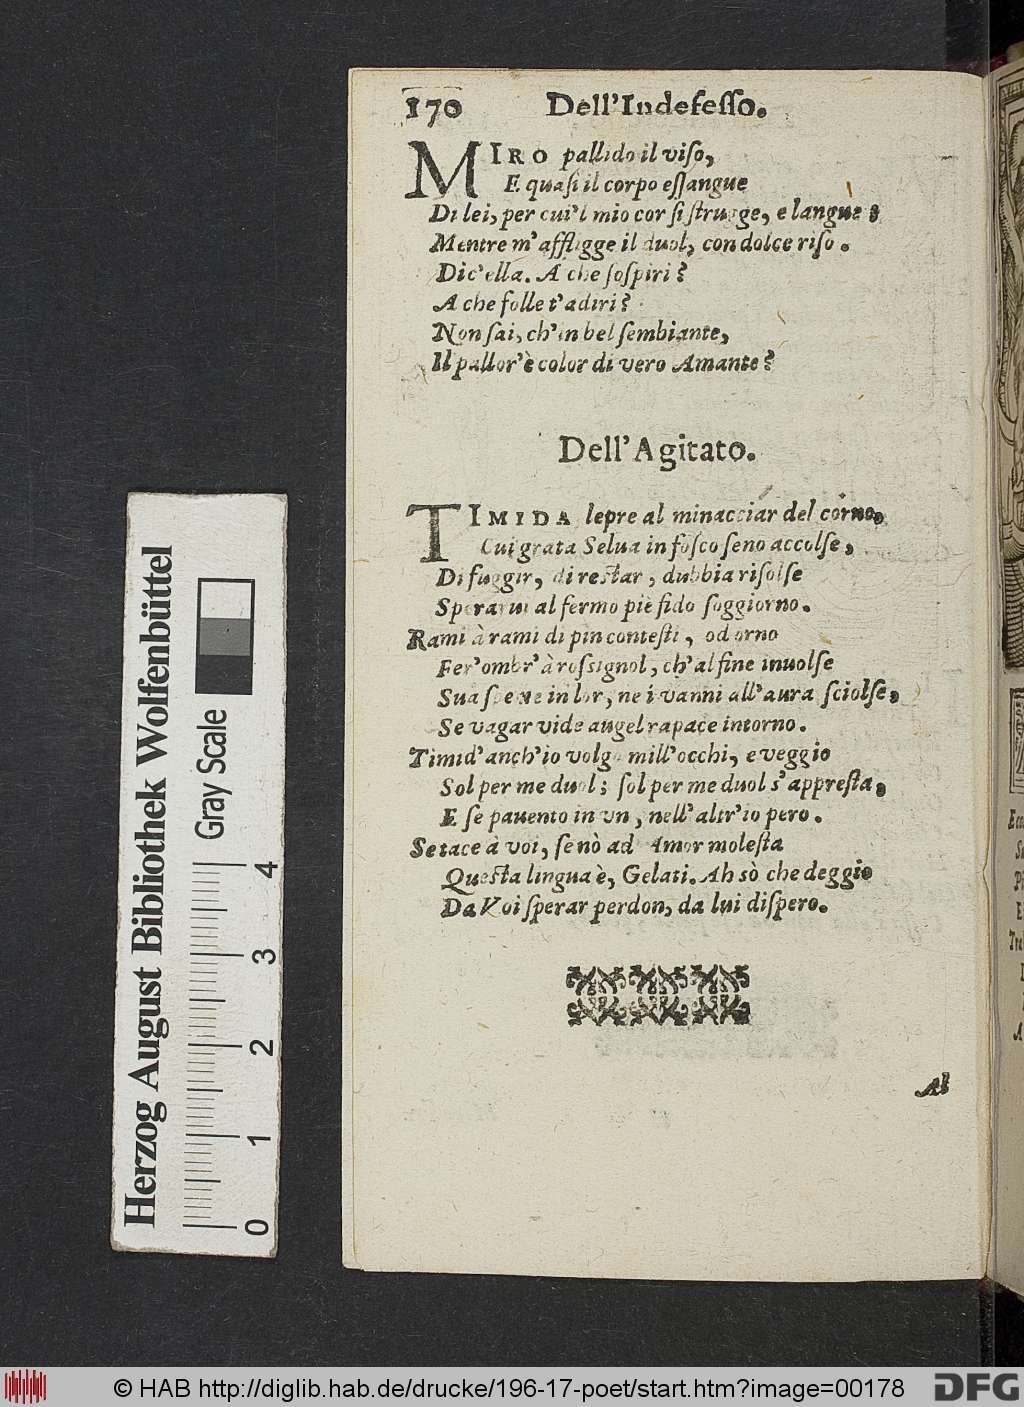 170 Dell'Indefeſſo.
MIRO pallido il viſo,
E quaſi il corpo eſſangue
Di lei, per cui'l mio cor ſi ſtrugge, e langue;
Mentre m'affligge il duol, con dolce riſo.
Dic'ella. A che ſoſpiri?
A che folle t'adiri?
Non ſai, ch'in bel ſembiante,
Il pallor'è color di vero Amante?
Dell'Agitato.
TIMIDA lepre al minacciar del corno,
Cui grata Selua in foſco ſeno accolſe,
Di fuggir, di reſtar, dubbia riſolſe
Sperarui al fermo piè fido ſoggiorno.
Rami à rami di pin conteſti, od orno
Fer'ombr'à roſsignol, ch'al fine inuolſe
Sua ſpene in lor, ne i vanni all'aura ſciolſe,
Se vagar vide augel rapace intorno.
Timid'anch'io volgo mill'occhi, e veggio
Sol per me duol; ſol per me duol s'appreſta,
E ſe pauento in vn, nell'altr'io pero.
Se tace à voi, ſe nò ad Amor moleſta
Queſta lingua è, Gelati. Ah sò che deggio
Da Voi ſperar perdon, da lui diſpero.
Al
Herzog August Bibliothek Wolfenbüttel
Gray Scale
0 1 2 3 4
© HAB http://diglib.hab.de/drucke/196-17-poet/start.htm?image=00178
DFG